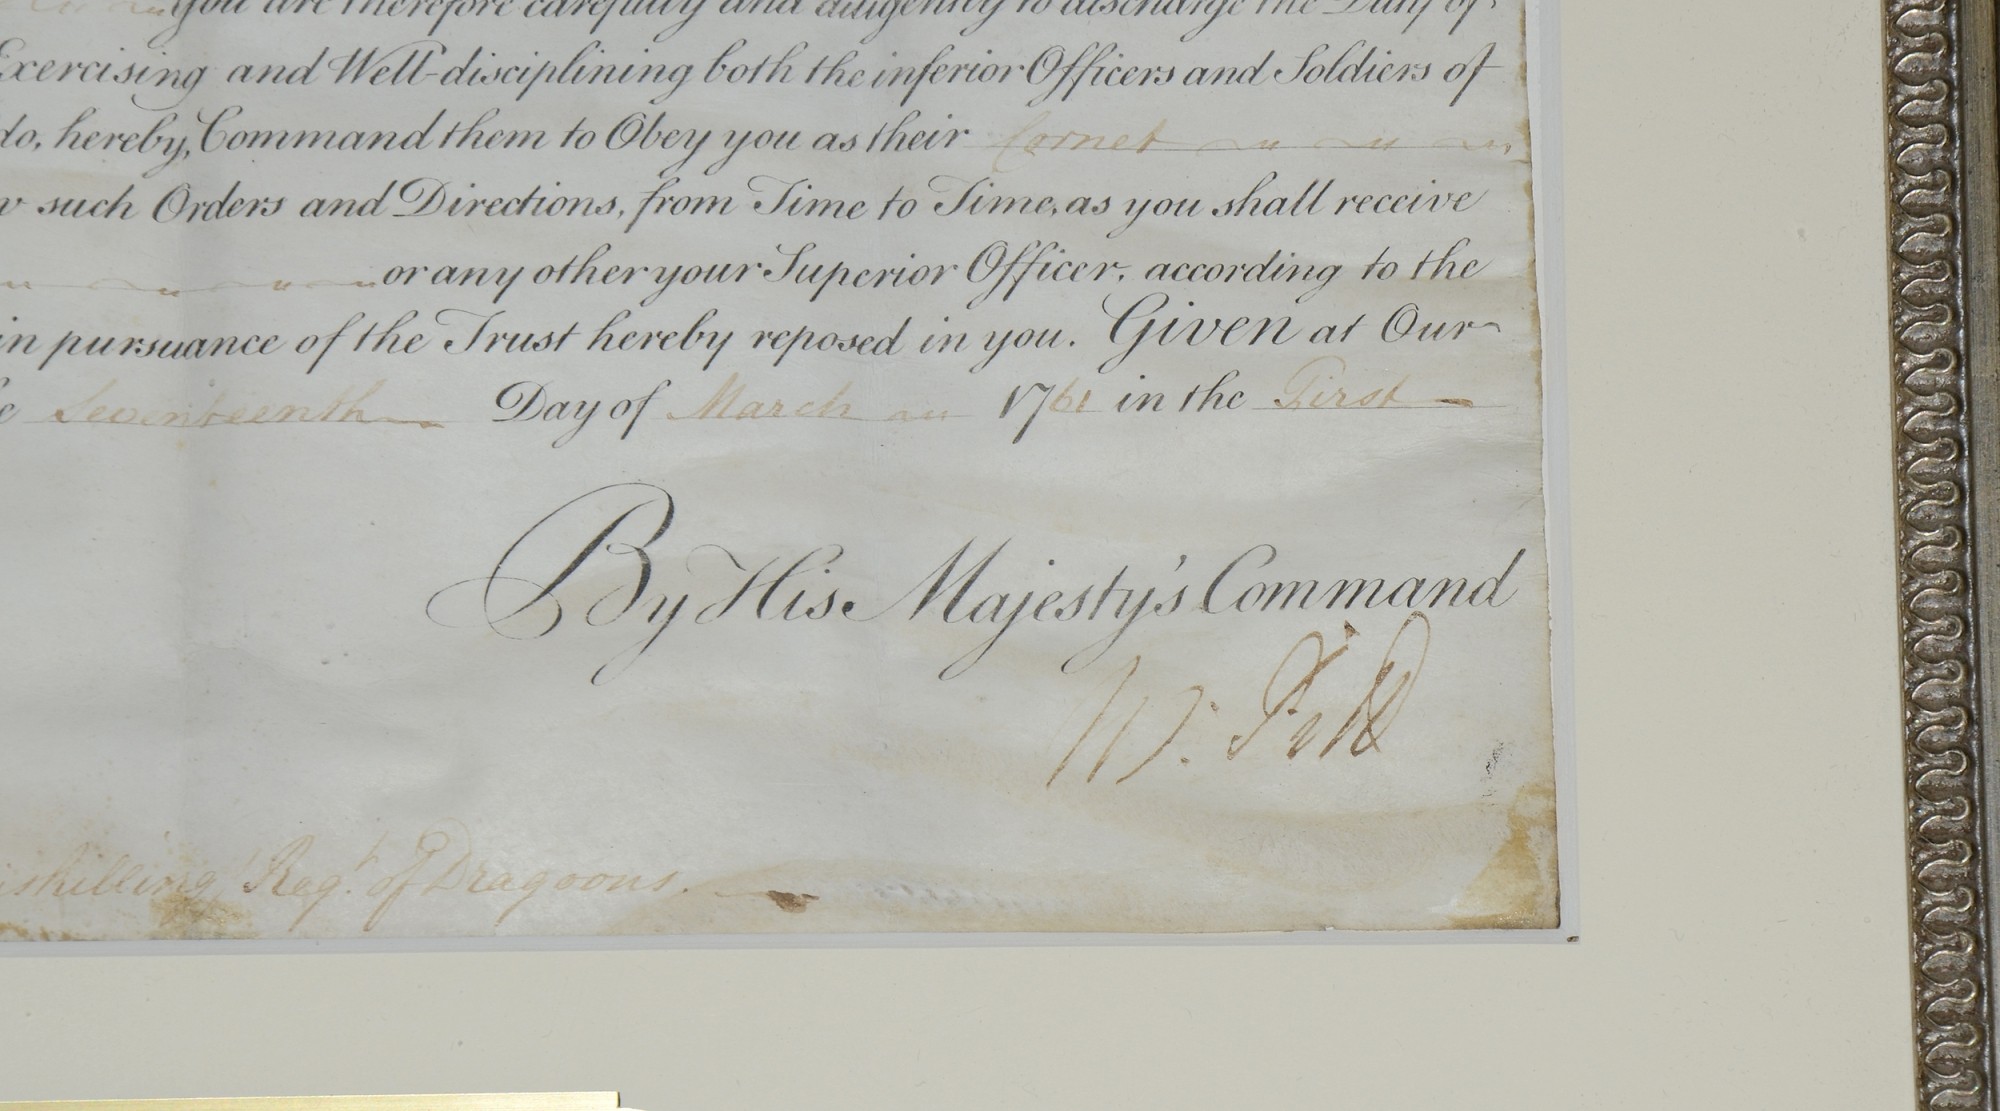 you are therefore carefully and diligently to discharge the Duty of
Exercising and Well-disciplining both the inferior Officers and Soldiers of
do, hereby, Command them to Obey you as their Cornet
such Orders and Directions, from Time to Time, as you shall receive
or any other your Superior Officer, according to the
in pursuance of the Trust hereby reposed in you. Given at Our
Seventeenth Day of March 1761 in the First
By His Majesty's Command
W: Pitt
iskilling Regt. of Dragoons.